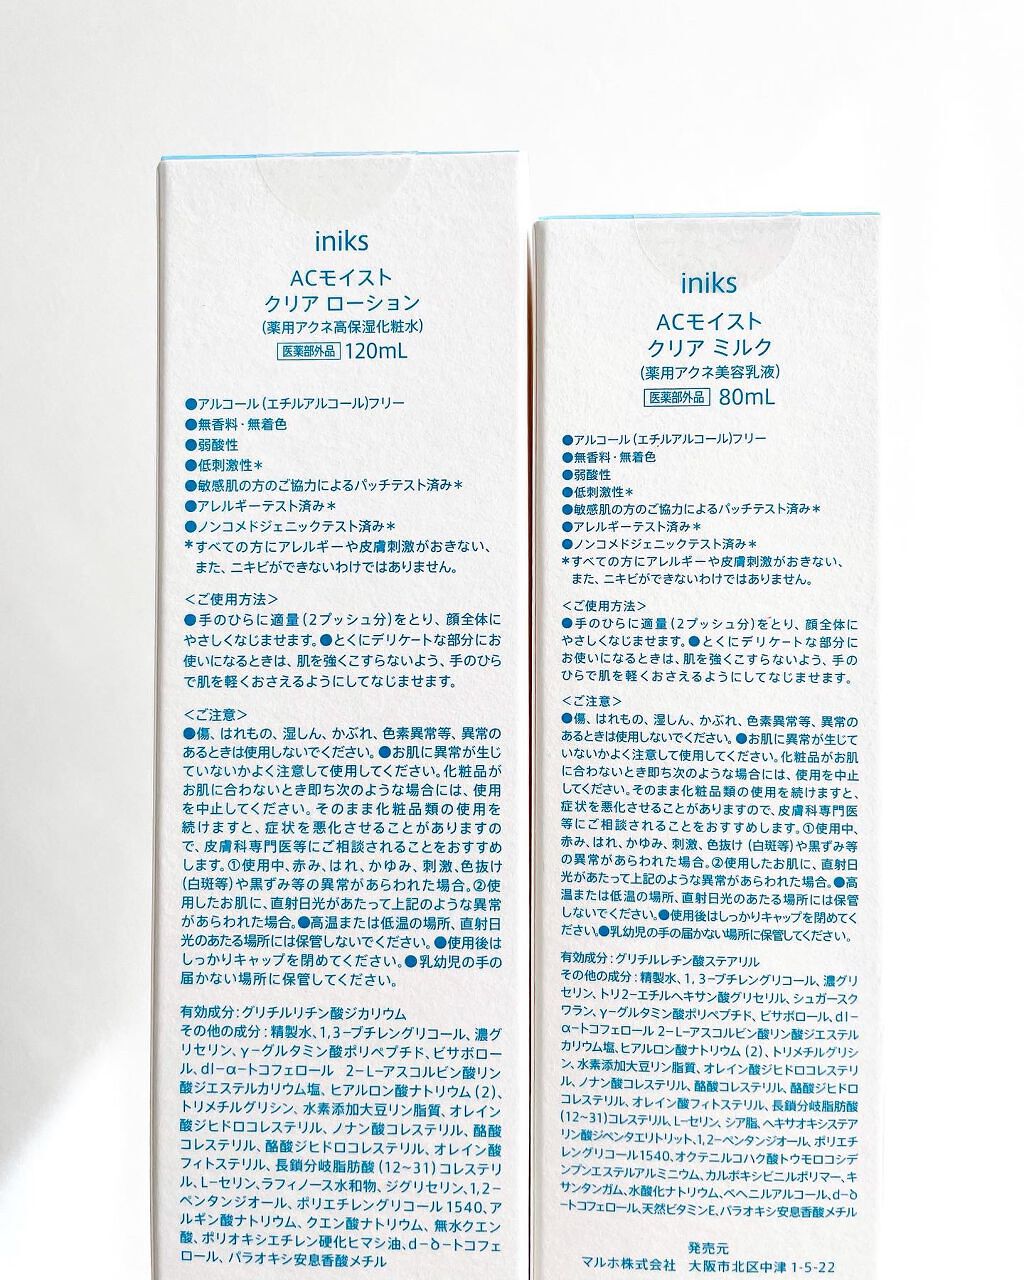 iniks
ACモイスト
クリア ローション
(薬用アクネ高保湿化粧水)
医薬部外品 120mL
●アルコール(エチルアルコール)フリー
●無香料・無着色
●弱酸性
●低刺激性＊
●敏感肌の方のご協力によるパッチテスト済み＊
●アレルギーテスト済み＊
●ノンコメドジェニックテスト済み＊
＊すべての方にアレルギーや皮膚刺激がおきない、
また、ニキビができないわけではありません。
＜ご使用方法＞
●手のひらに適量(2プッシュ分)をとり、顔全体に
やさしくなじませます。●とくにデリケートな部分にお
使いになるときは、肌を強くこすらないよう、手のひら
で肌を軽くおさえるようにしてなじませます。
＜ご注意＞
●傷、はれもの、湿しん、かぶれ、色素異常等、異常の
あるときは使用しないでください。●お肌に異常が生じ
ていないかよく注意して使用してください。化粧品が
お肌に合わないとき即ち次のような場合には、使用
を中止してください。そのまま化粧品類の使用を
続けますと、症状を悪化させることがありますの
で、皮膚科専門医等にご相談されることをおすすめ
します。①使用中、赤み、はれ、かゆみ、刺激、色抜け
(白斑等)や黒ずみ等の異常があらわれた場合。②使
用したお肌に、直射日光があたって上記のような異常
があらわれた場合。●高温または低温の場所、直射日
光のあたる場所には保管しないでください。●使用後は
しっかりキャップを閉めてください。●乳幼児の手の
届かない場所に保管してください。
有効成分：グリチルリチン酸ジカリウム
その他の成分：精製水、1,3−ブチレングリコール、濃グ
リセリン、γ−グルタミン酸ポリペプチド、ビサボロー
ル、dl−α−トコフェロール 2−L−アスコルビン酸リン
酸ジエステルカリウム塩、ヒアルロン酸ナトリウム(2)、
トリメチルグリシン、水素添加大豆リン脂質、オレイン
酸ジヒドロコレステリル、ノナン酸コレステリル、酪酸
コレステリル、酪酸ジヒドロコレステリル、オレイン酸
フィトステリル、長鎖分岐脂肪酸(12~31)コレステリ
ル、L−セリン、ラフィノース水和物、ジグリセリン、1,2−
ペンタンジオール、ポリエチレングリコール1540、ア
ルギン酸ナトリウム、クエン酸ナトリウム、無水クエン
酸、ポリオキシエチレン硬化ヒマシ油、d−δ−トコフェ
ロール、パラオキシ安息香酸メチル
iniks
ACモイスト
クリア ミルク
(薬用アクネ美容乳液)
医薬部外品 80mL
●アルコール(エチルアルコール)フリー
●無香料・無着色
●弱酸性
●低刺激性＊
●敏感肌の方のご協力によるパッチテスト済み＊
●アレルギーテスト済み＊
●ノンコメドジェニックテスト済み＊
＊すべての方にアレルギーや皮膚刺激がおきない、
また、ニキビができないわけではありません。
＜ご使用方法＞
●手のひらに適量(2プッシュ分)をとり、顔全体に
やさしくなじませます。●とくにデリケートな部分に
お使いになるときは、肌を強くこすらないよう、手の
ひらで肌を軽くおさえるようにしてなじませます。
＜ご注意＞
●傷、はれもの、湿しん、かぶれ、色素異常等、異常の
あるときは使用しないでください。●お肌に異常が生じて
いないかよく注意して使用してください。化粧品がお肌
に合わないとき即ち次のような場合には、使用を中止
してください。そのまま化粧品類の使用を続けますと、
症状を悪化させることがありますので、皮膚科専門医
等にご相談されることをおすすめします。①使用中、
赤み、はれ、かゆみ、刺激、色抜け(白斑等)や黒ずみ等
の異常があらわれた場合。②使用したお肌に、直射日
光があたって上記のような異常があらわれた場合。●高
温または低温の場所、直射日光のあたる場所には保管
しないでください。●使用後はしっかりキャップを閉めてく
ださい。●乳幼児の手の届かない場所に保管してください。
有効成分：グリチルレチン酸ステアリル
その他の成分：精製水、1,3−ブチレングリコール、濃グリ
セリン、トリ2−エチルヘキサン酸グリセリル、シュガースク
ワラン、γ−グルタミン酸ポリペプチド、ビサボロール、dl−
α−トコフェロール 2−L−アスコルビン酸リン酸ジエステル
カリウム塩、ヒアルロン酸ナトリウム(2)、トリメチルグリシ
ン、水素添加大豆リン脂質、オレイン酸ジヒドロコレステリ
ル、ノナン酸コレステリル、酪酸コレステリル、酪酸ジヒドロ
コレステリル、オレイン酸フィトステリル、長鎖分岐脂肪酸
(12~31)コレステリル、L−セリン、シア脂、ヘキサオキシステア
リン酸ジペンタエリトリット、1,2−ペンタンジオール、ポリエチ
レングリコール1540、オクテニルコハク酸トウモロコシデ
ンプンエステルアルミニウム、カルボキシビニルポリマー、キ
サンタンガム、水酸化ナトリウム、ベヘニルアルコール、d−δ
−トコフェロール、天然ビタミンE、パラオキシ安息香酸メチル
発売元
マルホ株式会社 大阪市北区中津 1-5-22